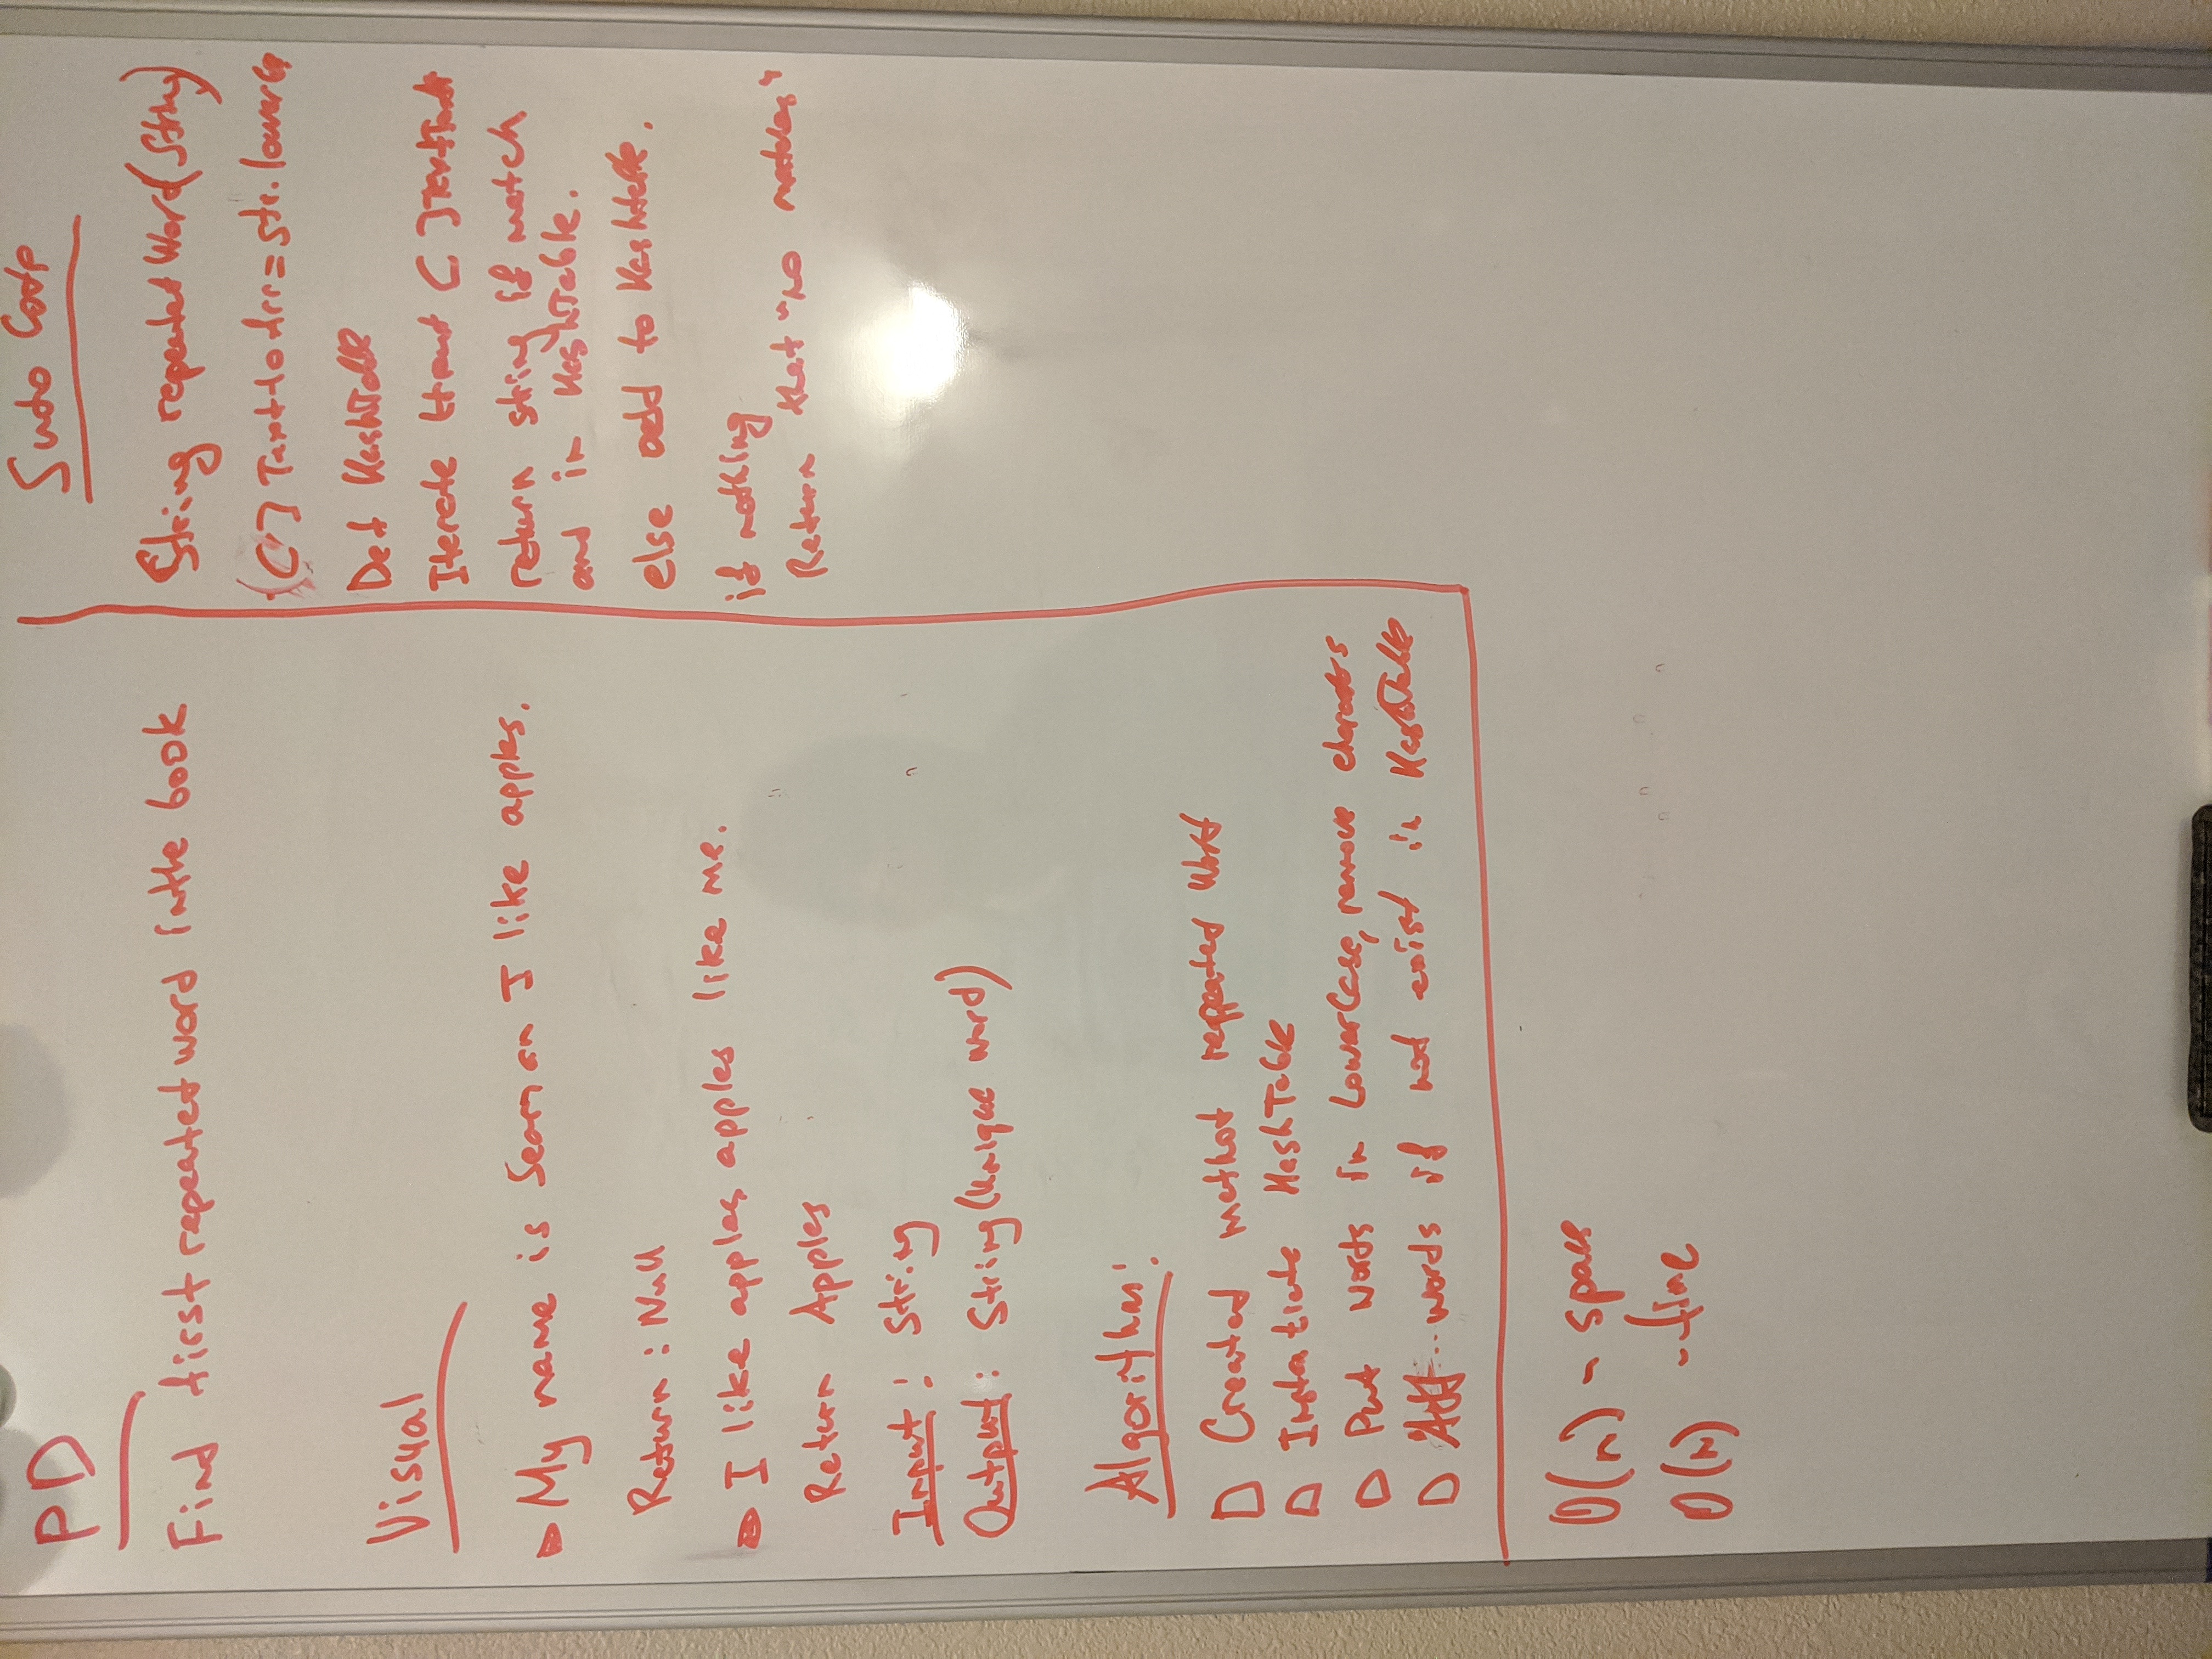 PD
Find first repeated word in the book
Visual
My name is an I like apples.
Return : Null
I like apples apples like me.
Return Apples
Input : String
Output : String (Unique word)
Algorithm :
Created method reppeated Word
Instatiate HashTable
Put words in LowerCase, remove
Add words if not exist in HashTable
O(n) - space
O(n) - time
Sudo Code
String repeated Word (String)
[] Text to Arr = str. lowerCa
Def HashTable
Iterate []
return string if match
and in HashTable.
else add to Hashtable.
if nothing
Return that "no matches"